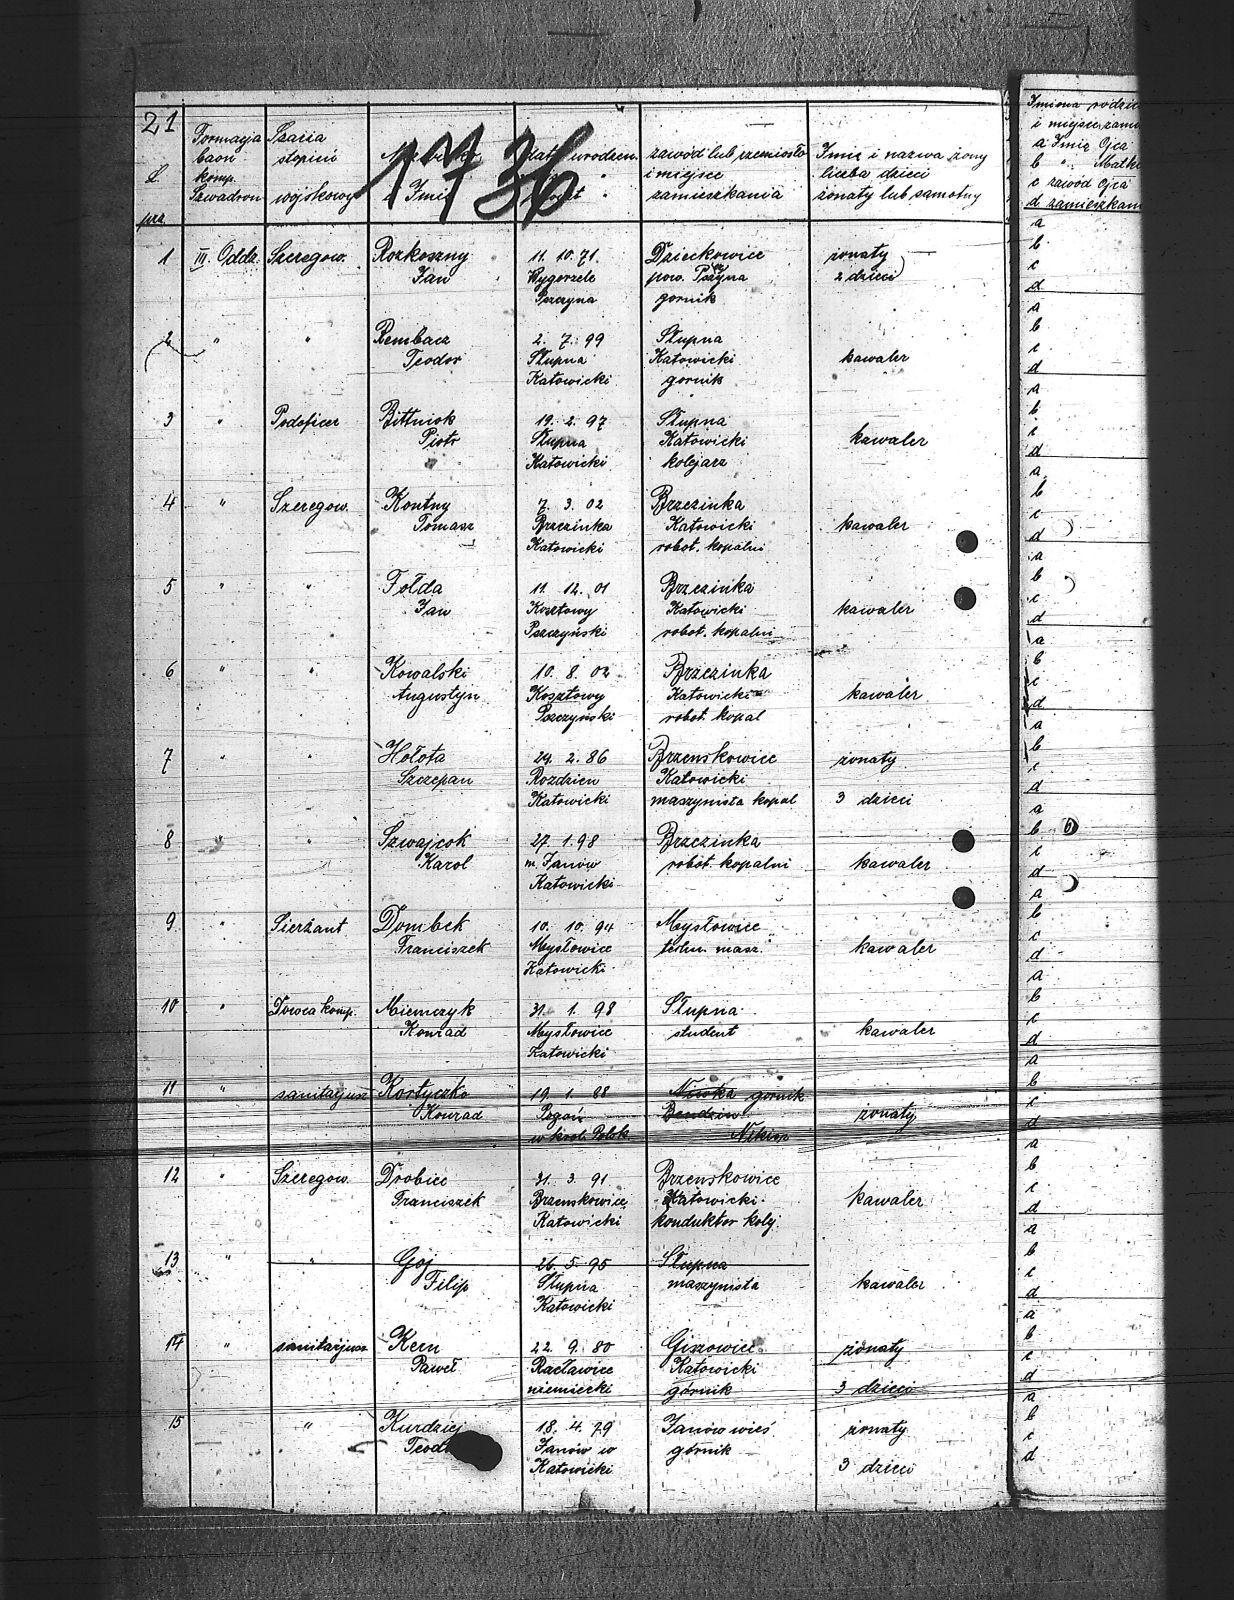 21
1736
Formacja baon komp. Szwadron
Szarża stopień wojskowy
Imię
urodzen.
zawód lub rzemiosło i miejsce zamieszkania
Imię i nazwa żony liczba dzieci żonaty lub samotny
Imiona rodzic
i miejsce zam
a Imię Ojca
b " Matki
c zawód Ojca
d zamieszkan
1 III. Oddz. Szeregow. Rozkoszny 11. 10. 71. Dzieckowice żonaty
Jan Wygorzele pow. Pszczyna 2 dzieci
Pszczyna gornik
2 " " Rembacz 2. 7. 99 Słupna
Teodor Słupna Katowicki kawaler
Katowicki gornik
3 " Podoficer Bittniok 19. 2. 97 Słupna
Piotr Słupna Katowicki kawaler
Katowicki kolejarz
4 " Szeregow. Kontny 7. 3. 02 Brzezinka
Tomasz Brzezinka Katowicki kawaler
Katowicki robot. kopalni
5 " " Fołda 11. 12. 01 Brzezinka
Jan Kosztowy Katowicki kawaler
Pszczyński robot. kopalni
6 " " Kowalski 10. 8. 02 Brzezinka
Augustyn Kosztowy Katowicki kawaler
Pszczyński robot. kopal
7 " " Hołota 24. 2. 86 Brzenskowice żonaty
Szczepan Rozdzien Katowicki
Katowicki maszynista kopal 3 dzieci
8 " " Szwajcok 27. 1. 98 Brzezinka
Karol m. Janów robot. kopalni kawaler
Katowicki
9 " Sierżant Dombek 10. 10. 94 Mysłowice
Franciszek Mysłowice techn. masz. kawaler
Katowicki
10 " Dowca komp. Niemczyk 31. 1. 98 Słupna
Konrad Mysłowice student kawaler
Katowicki
11 " sanitarjusz Kostyczko 19. 1. 88 Niwka gornik
Konrad Pogoń Bendzin żonaty
w kosl. Polsk.
12 " Szeregow. Drobiec 31. 3. 91 Brzenskowice
Franciszek Brzenskowice Katowicki kawaler
Katowicki konduktor kolj.
13 " " Goj 26. 5. 95 Słupna
Filip Słupna maszynista kawaler
Katowicki
14 " sanitarjusz Kern 22. 9. 80 Giszowiec żonaty
Paweł Racławice Katowicki
niemiecki górnik 3 dzieci
15 " Kurdziej 18. 4. 79 Janów wieś żonaty
Janów w górnik
Katowicki 3 dzieci
a
b
c
d
a
b
c
d
a
b
c
d
a
b
c
d
a
b
c
d
a
b
c
d
a
b
c
d
a
b
c
d
a
b
c
d
a
b
c
d
a
b
c
d
a
b
c
d
a
b
c
d
a
b
c
d
a
b
c
d